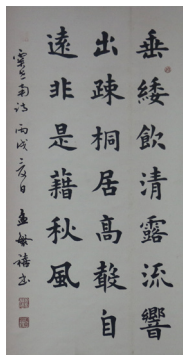 垂緌飲清露流響
出疎桐居高聲自
遠非是藉秋風
虞世南詩 丙戌夏日 孟繁禧書